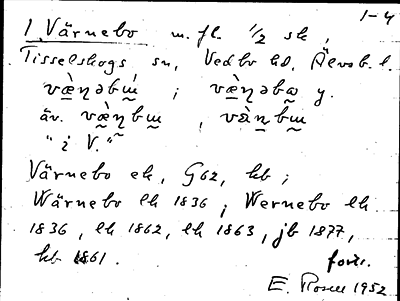 1-4
1. Värnebo m. fl. 1/2 sk,
Tisselskogs sn, Vedbo hd, Älvsb. l.
væ̀ṇəbɯ́ ; væ̀ṇəbɷ y.
äv. væ̀ṇbɯ , væ̀ṇbɯ
"i V."
Värnebo ek, G62, kb ;
Wärnebo lk 1836 ; Wernebo lk
1836, lk 1862, lk 1863, jb 1877,
kb 1861. forts.
E. Rosell 1952